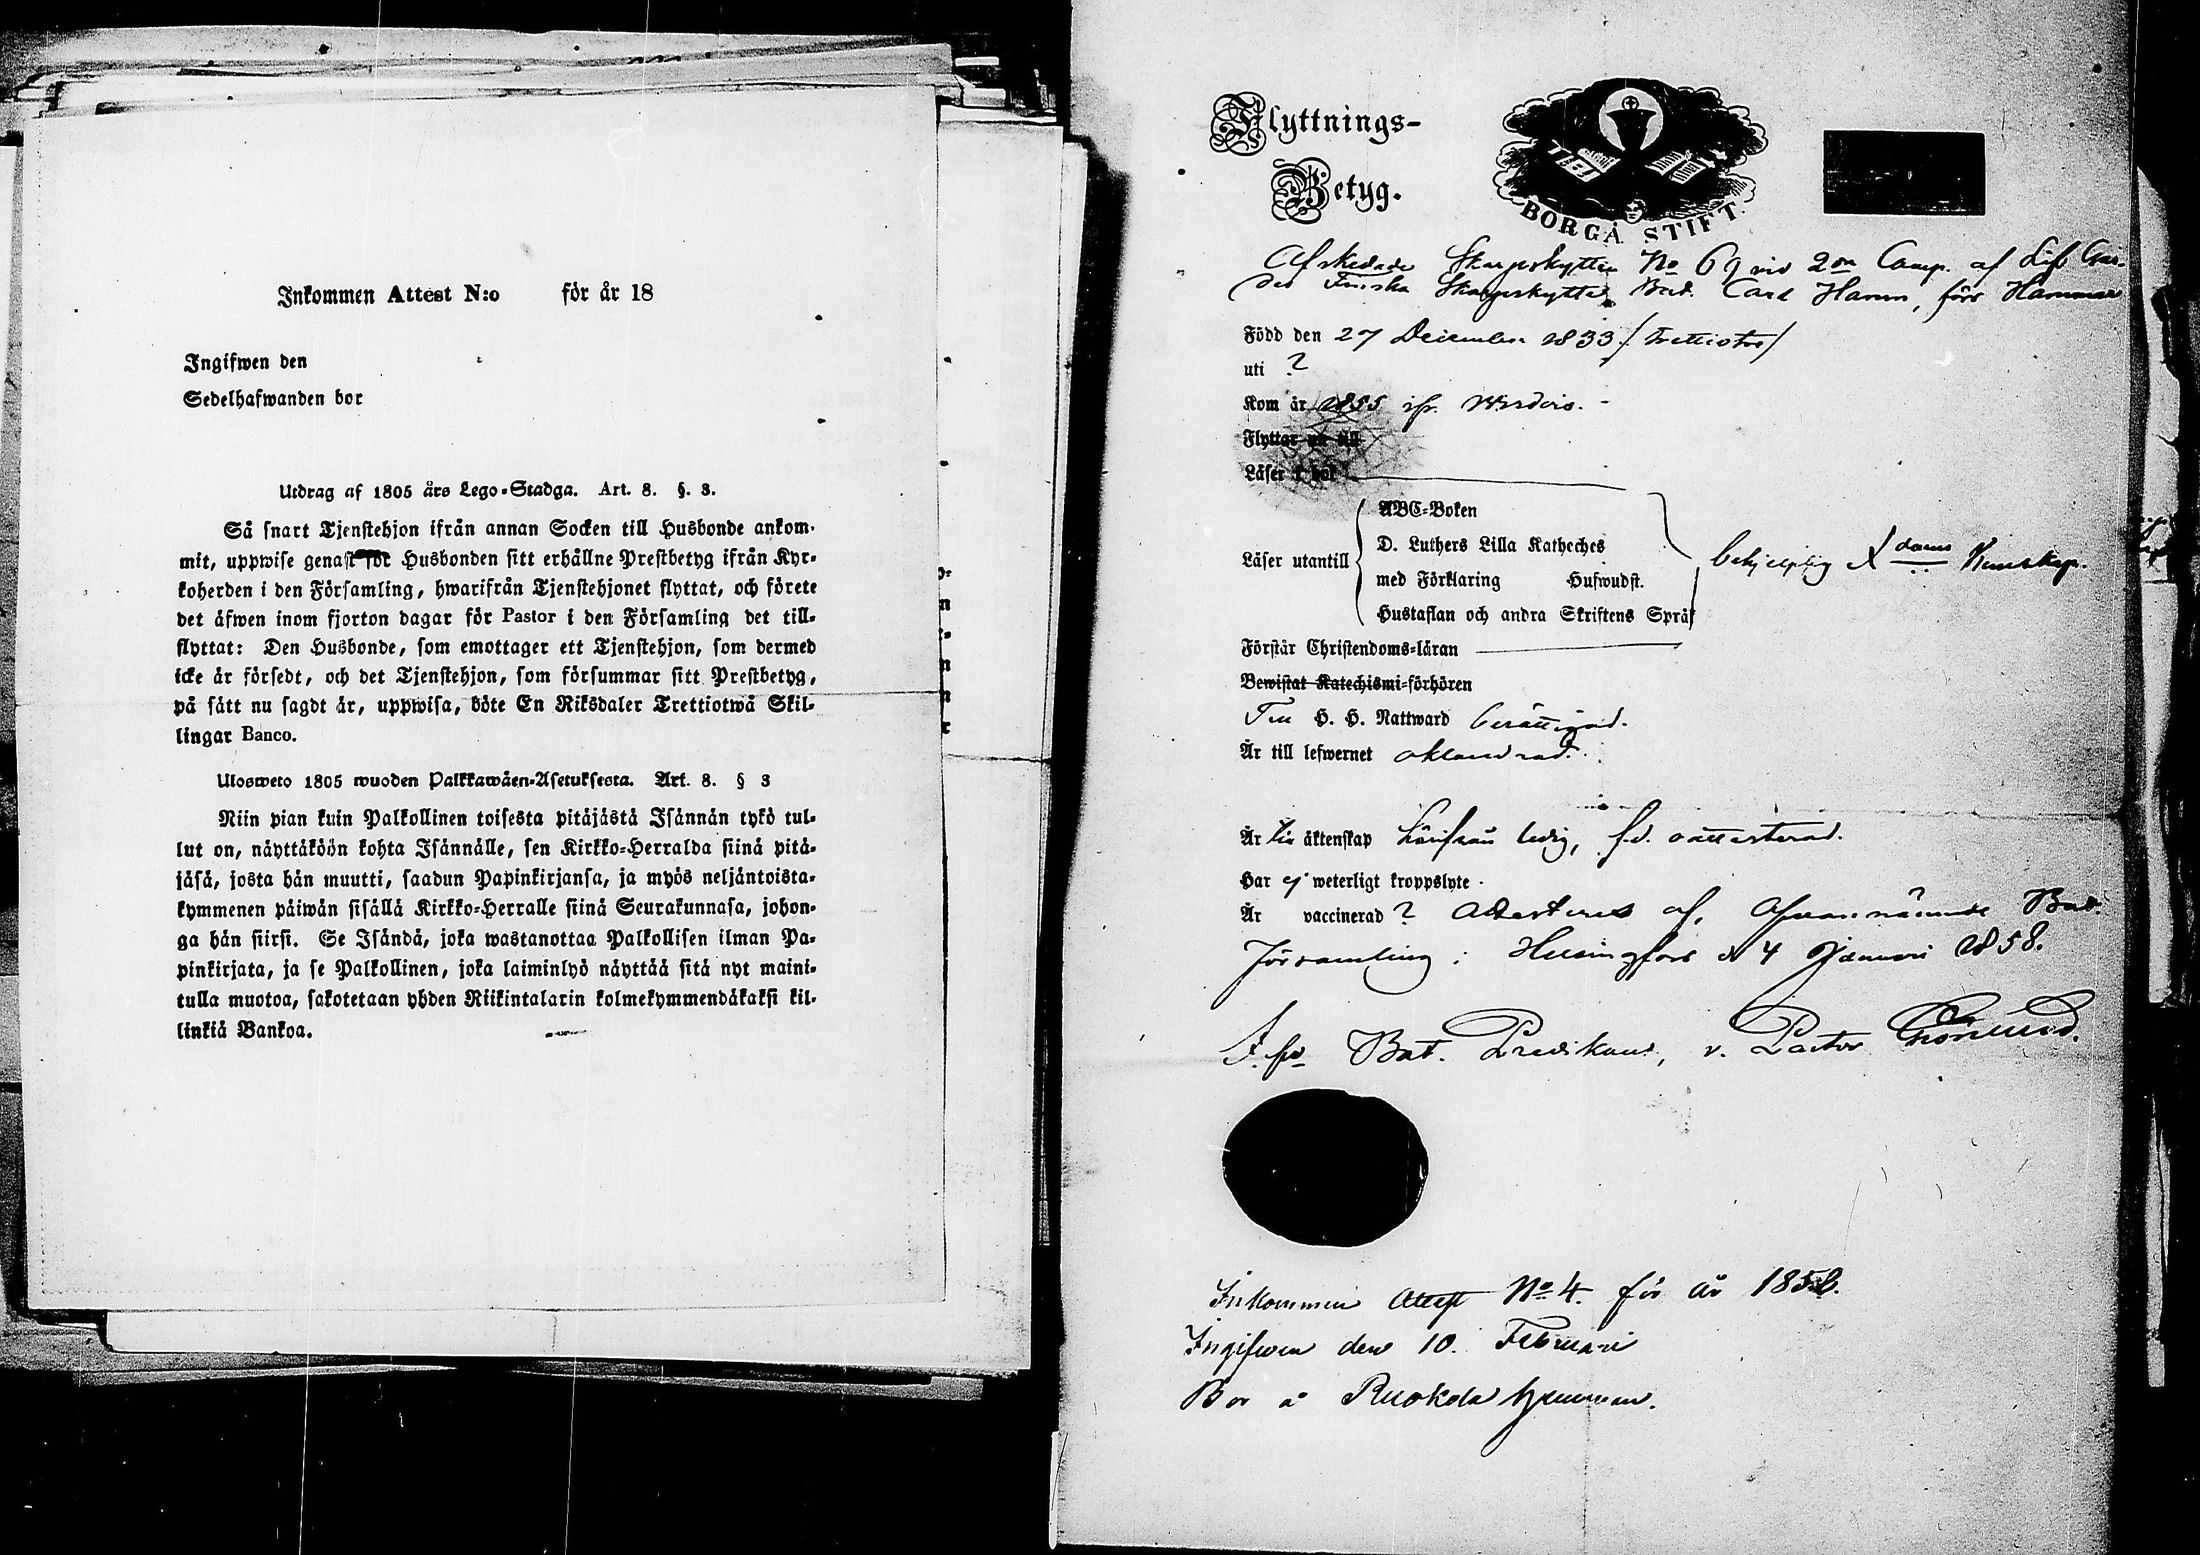 Inkommen Attest N:o för år 18
Ingifwen den
Sedelhafwanden bor
Utdrag af 1805 års Lego-Stadga. Art. 8. §. 3.
Så snart Tjenstehjon ifrån annan Socken till Husbonde ankom-
mit, uppwise genast för Husbonden sitt erhållne Prestbetyg ifrån Kyr-
koherden i den Församling, hwarifrån Tjenstehjonet flyttat, och förete
det äfwen inom fjorton dagar för Pastor i den Församling det till-
flyttat: Den Husbonde, som emottager ett Tjenstehjon, som dermed
icke är försedt, och det Tjenstehjon, som försummar sitt Prestbetyg,
på sätt nu sagdt är, uppwisa, böte En Riksdaler Trettiotwå Skil-
lingar Banco.
Ulosweto 1805 wuoden Palkkawäen-Asetuksesta. Art. 8. § 3
Niin pian kuin Palkollinen toisesta pitäjästä Isännän tykö tul-
lut on, näyttäköön kohta Isännälle, sen Kirkko-Herralda siinä pitä-
jäsä, josta hän muutti, saadun Papinkirjansa, ja myös neljäntoista-
kymmenen päiwän sisällä Kirkko-Herralle siinä Seurakunnasa, johon-
ga hän siirsi. Se Isändä, joka wastanottaa Palkollisen ilman Pa-
pinkirjata, ja se Palkollinen, joka laiminlyö näyttää sitä nyt maini-
tulla muotoa, sakotetaan yhden Riikintalarin kolmekymmendäkaksi kil-
linkiä Bankoa.
Flyttnings-
Betyg.
BORGÅ STIFT.
Afskedade Skarpskytten No 69 vid 2on Comp. af Lif Gar-
des Finska Skarpskytte Bat. Carl Hamm, förr Hammar
Född den 27 December 1833 /: trettiotre/
uti ?
Kom år 1855 ifr.
Flyttar nu till
Läser i bok
ABC-Boken
D. Luthers Lilla Katheches
Läser utantill
med Förklaring Hufwudst.
Hustaflan och andra Skriftens Språk
behjelplig Xdoms Kunskap.
Förstår Christendoms-läran
Bewistat Katechismi-förhören
Till H. H. Nattward berättigad.
Är till lefwernet oklandrad.
Är till äktenskap härifrån ledig, f.d. oattesterad.
Har ej weterligt kroppslyte.
Är vaccinerad ? Attesteras af, Ofvannämnde Bat.
Församling i Helsingfors d 4 Januari 1858.
Bat. Predikant, v. Pastor
Inkommen Attest No 4. för år 1858.
Ingifwen den 10. Februari
Bor å Ruokola